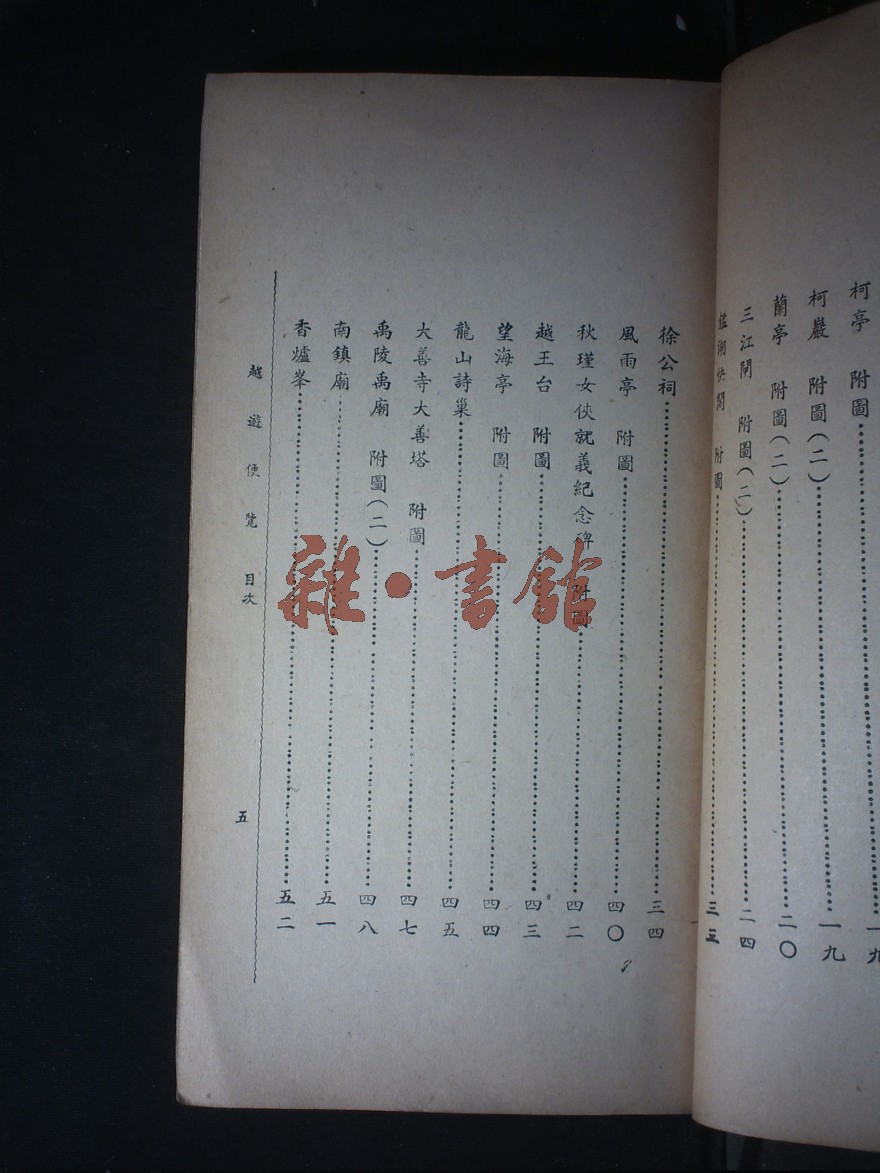 柯亭 附圖 一九
柯巖 附圖(二) 一九
蘭亭 附圖(二) 二〇
三江閘 附圖(二) 二四
鑑湖快閣 附圖 三三
徐公祠 三四
風雨亭 附圖 四〇
秋瑾女俠就義紀念碑 附圖 四二
越王台 附圖 四三
望海亭 附圖 四四
龍山詩巢 四五
大善寺大善塔 附圖 四七
禹陵禹廟 附圖(二) 四八
南鎮廟 五一
香爐峯 五二
越遊便覽 目次 五
雜·書館